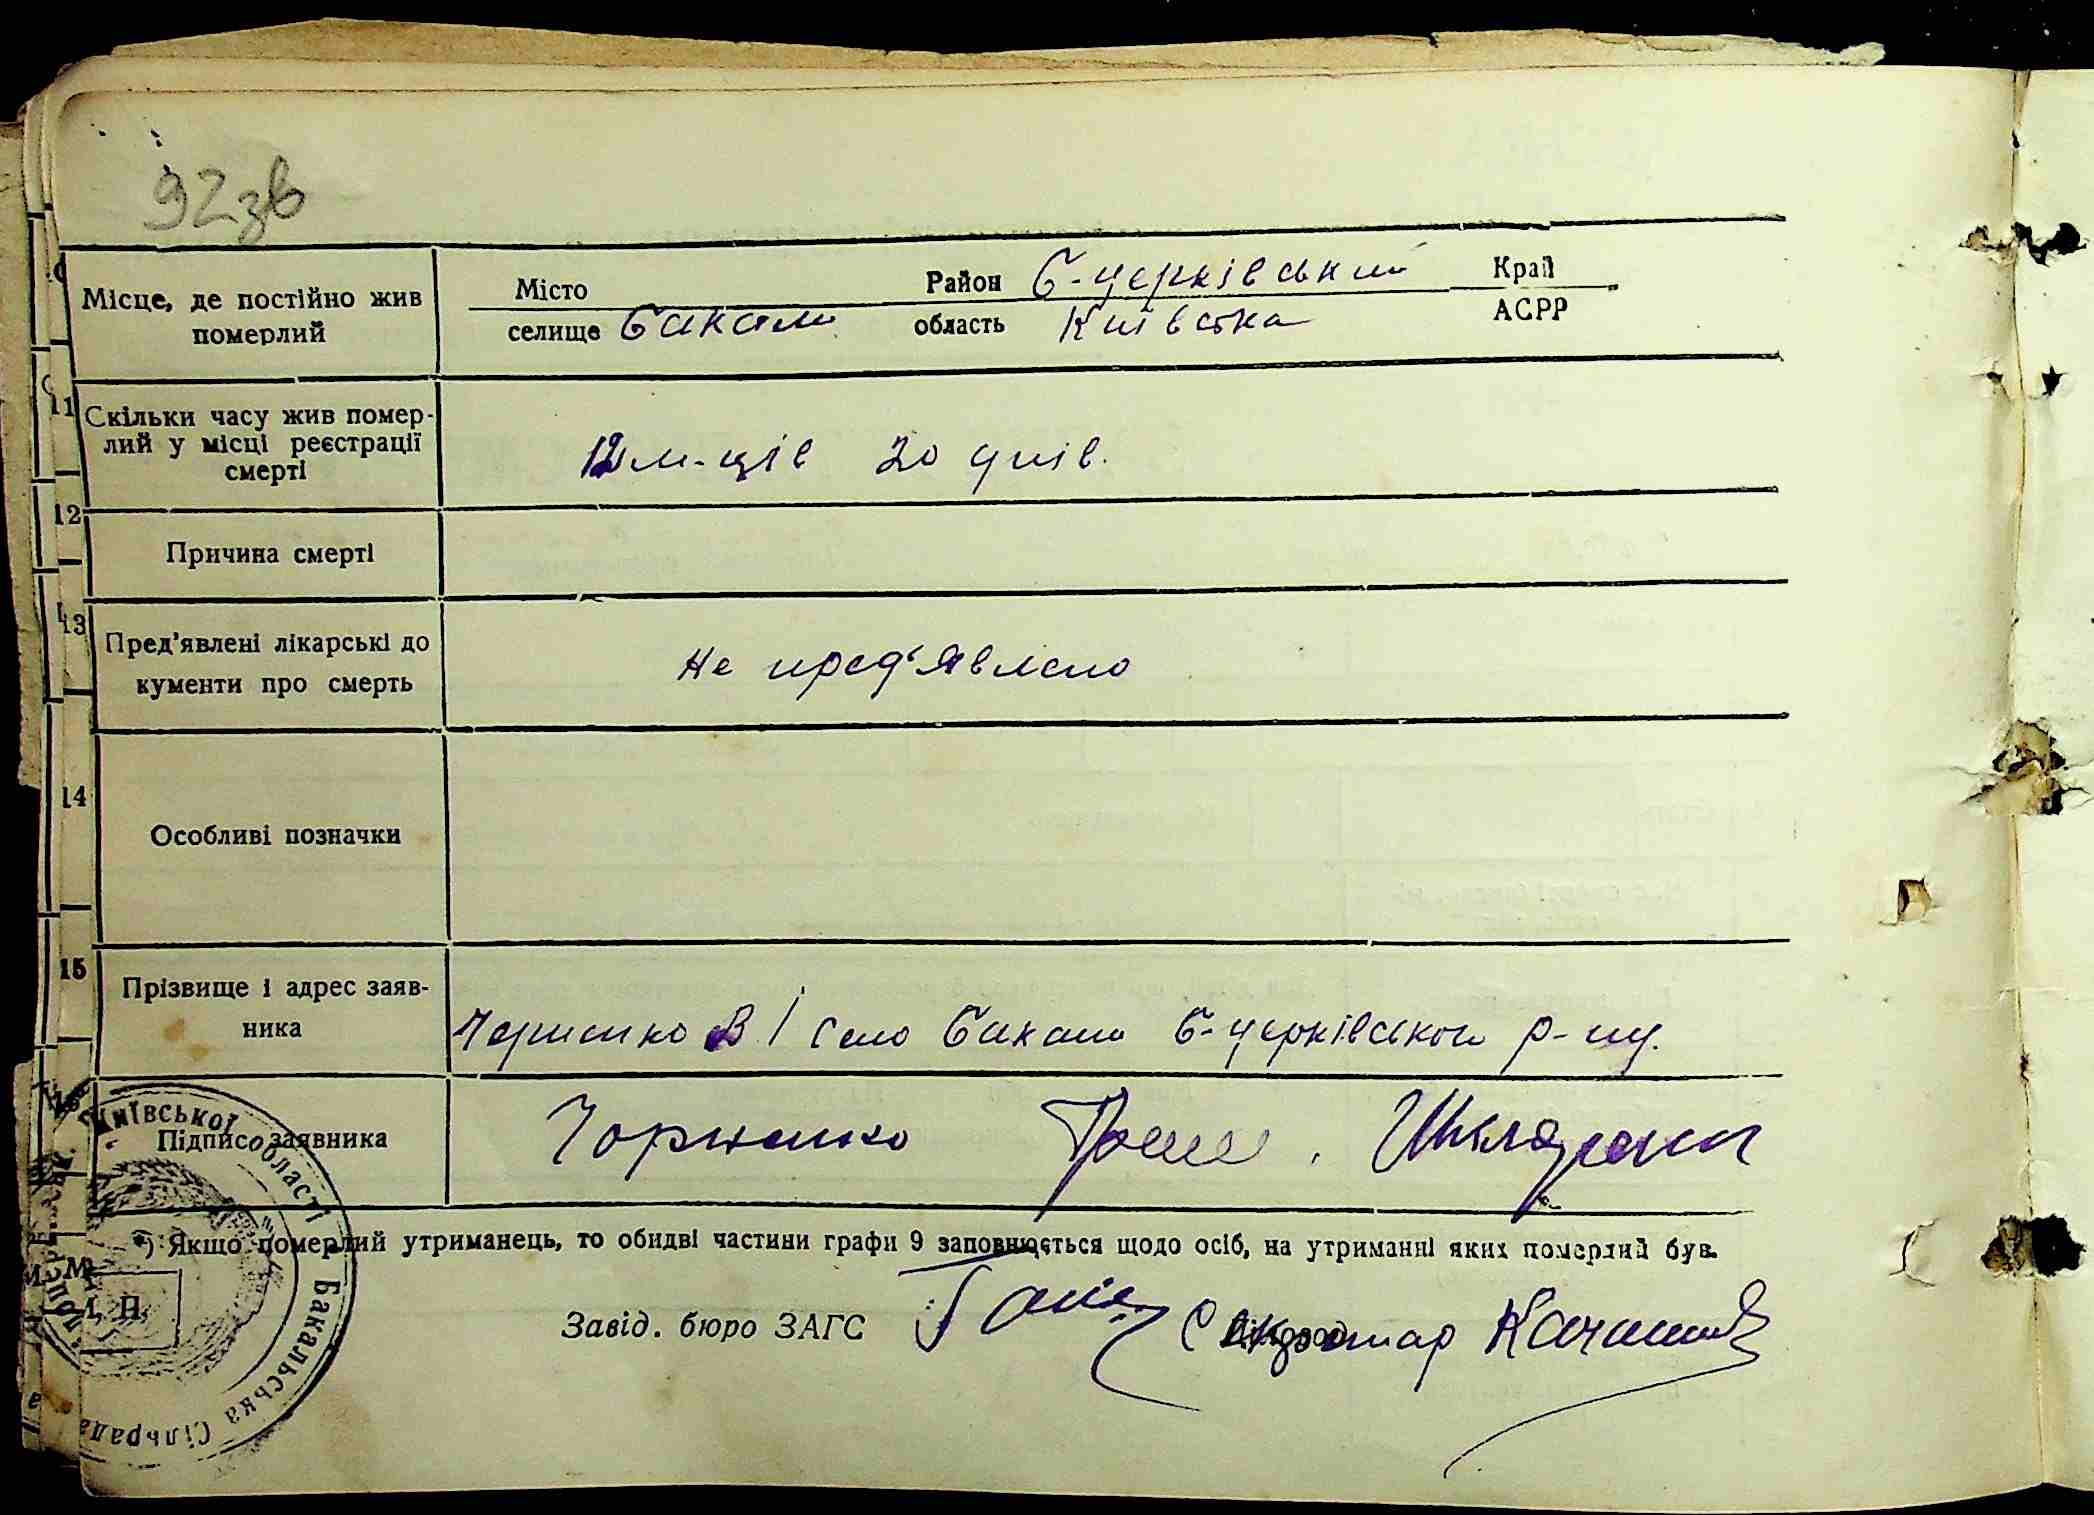 92зв
Місце, де постійно жив
померлий
Місто Район Б-церківський Край
селище Бакали область Київська АСРР
11
Скільки часу жив помер-
лий у місці реєстрації
смерті
12 м-ців 20 днів.
12
Причина смерті
13
Пред'явлені лікарські до
кументи про смерть
Не пред'явлено
14
Особливі позначки
15
Прізвище і адрес заяв-
ника
Черненко В І село Бакали Б-церківської р-ну.
Підпис заявника
Чорненко
*) Якщо померлий утриманець, то обидві частини графи 9 заповнюється щодо осіб, на утриманні яких померлий був.
М. П.
Завід. бюро ЗАГС Секретар
Київської області Бакальська Сільрада